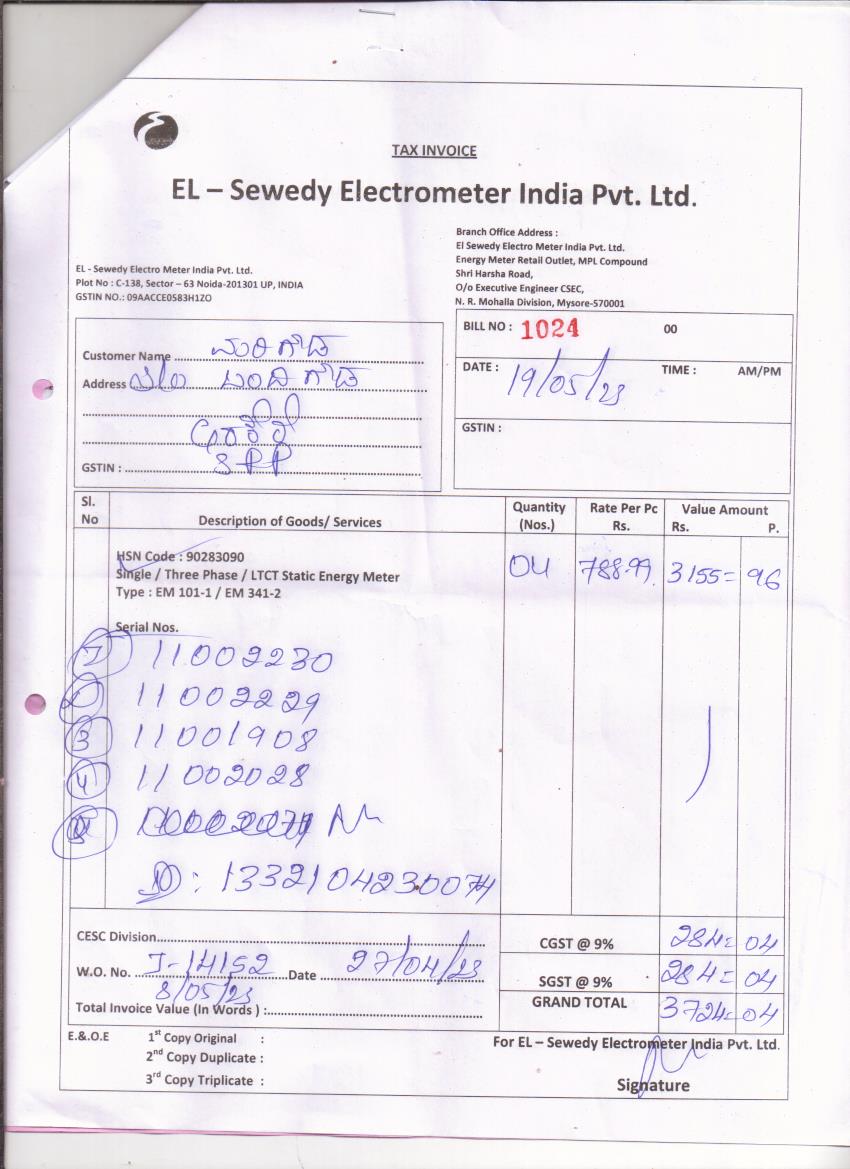 TAX INVOICE
EL – Sewedy Electrometer India Pvt. Ltd.
EL - Sewedy Electro Meter India Pvt. Ltd.
Plot No : C-138, Sector – 63 Noida-201301 UP, INDIA
GSTIN NO.: 09AACCE0583H1ZO
Branch Office Address :
El Sewedy Electro Meter India Pvt. Ltd.
Energy Meter Retail Outlet, MPL Compound
Shri Harsha Road,
O/o Executive Engineer CSEC,
N. R. Mohalla Division, Mysore-570001
Customer Name
Address
GSTIN :
BILL NO : 1024 00
DATE : 19/05/23 TIME : AM/PM
GSTIN :
Sl. No Description of Goods/ Services Quantity (Nos.) Rate Per Pc Rs. Value Amount Rs. P.
HSN Code : 90283090
Single / Three Phase / LTCT Static Energy Meter 04 788.99 3155= 96
Type : EM 101-1 / EM 341-2
Serial Nos.
1 11002230
2 11002229
3 11001908
4 11002028
: 1332104230074
CESC Division
W.O. No. J-14152 Date 27/04/23
8/05/23
Total Invoice Value (In Words) :
CGST @ 9% 284= 04
SGST @ 9% 284= 04
GRAND TOTAL 3724= 04
E.&.O.E 1st Copy Original :
2nd Copy Duplicate :
3rd Copy Triplicate :
For EL – Sewedy Electrometer India Pvt. Ltd.
Signature